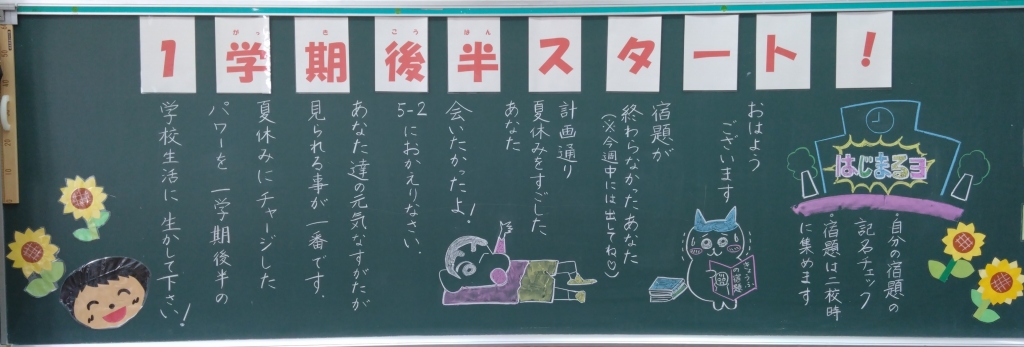 1学期後半スタート!
がっ き こう はん
はじまるヨ
・自分の宿題の
記名チェック
・宿題は一枚時
に集めます
おはよう
ございます
宿題が
終わらなかったあなた
(※今週中には出してね♡)
計画通り
夏休みをすごした
あなた
会いたかったよ!
5-2におかえりなさい。
あなた達の元気なすがたが
見られる事が一番です。
夏休みにチャージした
パワーを一学期後半の
学校生活に生かして下さい!